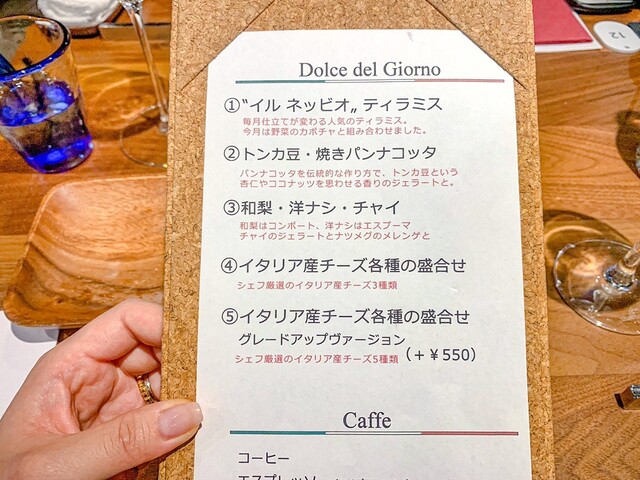 Dolce del Giorno
①“イル ネッビオ„ ティラミス
毎月仕立てが変わる人気のティラミス。
今月は野菜のカボチャと組み合わせました。
②トンカ豆・焼きパンナコッタ
パンナコッタを伝統的な作り方で、トンカ豆という
杏仁やココナッツを思わせる香りのジェラートと。
③和梨・洋ナシ・チャイ
和梨はコンポート、洋ナシはエスプーマ
チャイのジェラートとナツメグのメレンゲと
④イタリア産チーズ各種の盛合せ
シェフ厳選のイタリア産チーズ3種類
⑤イタリア産チーズ各種の盛合せ
グレードアップヴァージョン
シェフ厳選のイタリア産チーズ5種類 (+¥550)
Caffe
コーヒー
エスプレッソ
12